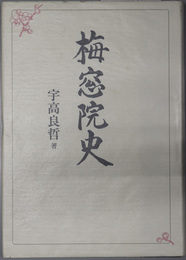 梅窓院史
宇高良哲 著